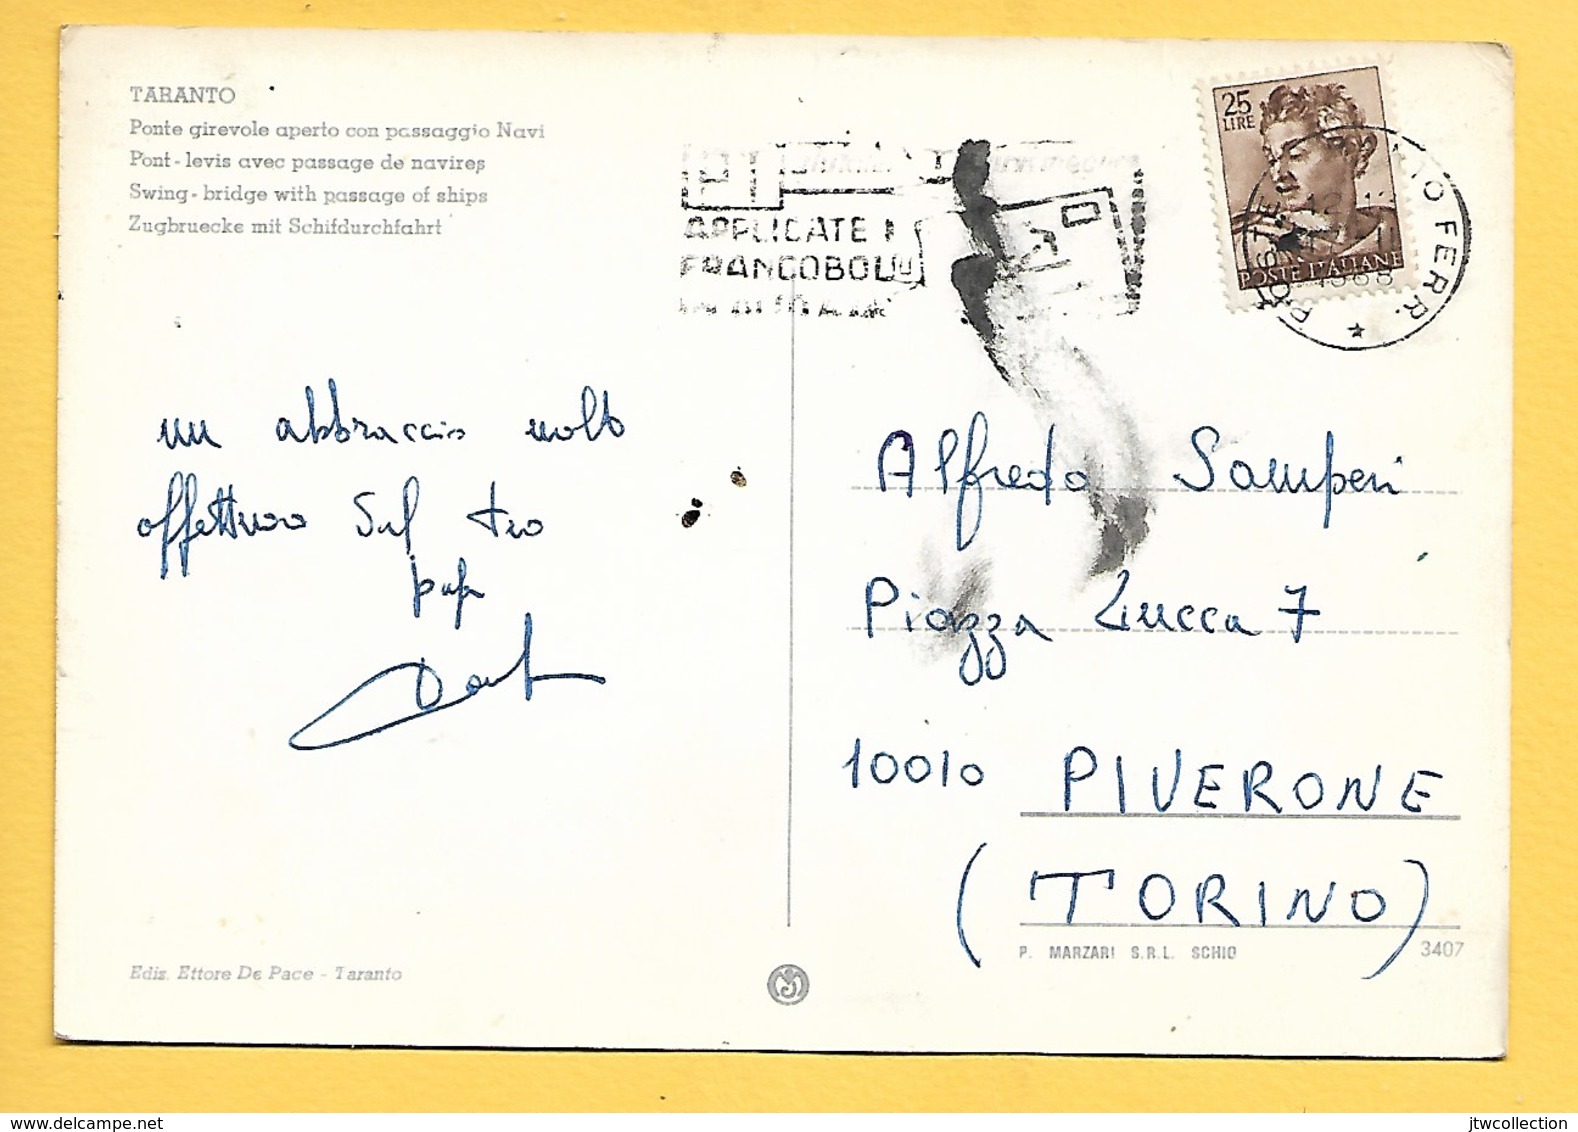 TARANTO
Ponte girevole aperto con passaggio Navi
Pont-levis avec passage de navires
Swing-bridge with passage of ships
Zugbruecke mit Schifdurchfahrt
APPLICATE I
FRANCOBOLLI
25
LIRE
POSTE ITALIANE
POSTE FERR.
1968
un abbraccio molto
affettuoso dal tuo
papà
Alfredo Samperi
Piazza Lucca 7
10010 PIVERONE
(TORINO)
P. MARZARI S.R.L. SCHIO 3407
Ediz. Ettore De Pace - Taranto
jtwcollection